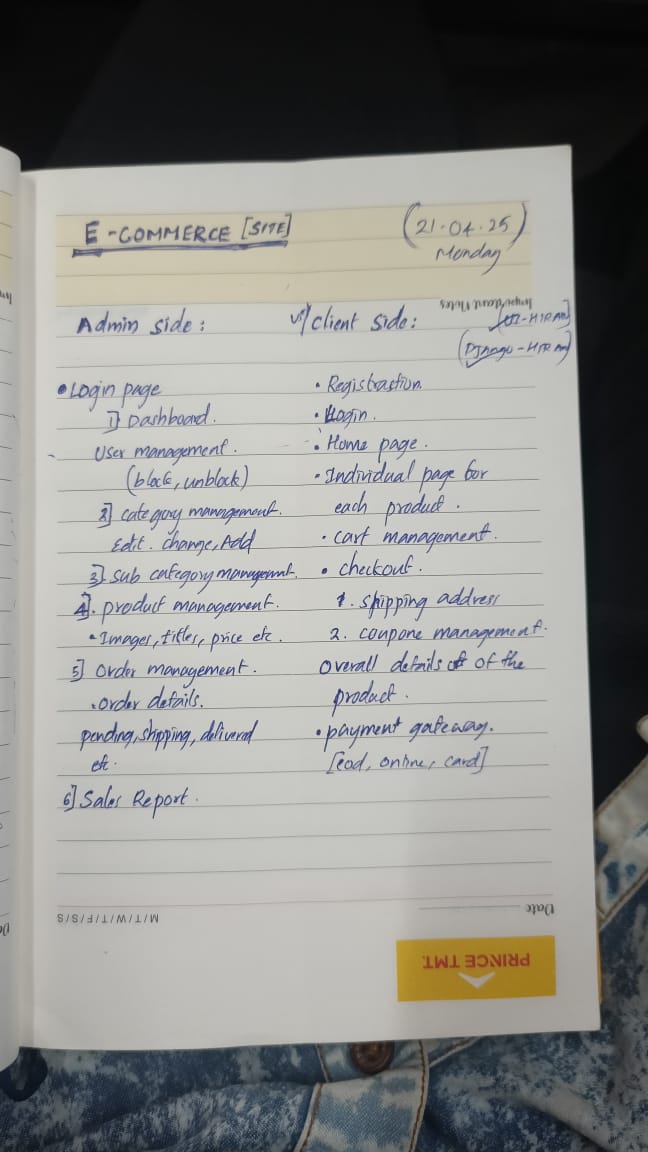 E-COMMERCE [SITE]
(21.04.25)
Monday
Important Notes
Admin side:
client side:
(Django-HIRAN)
• Login page
1) Dashboard.
User management.
(block, unblock)
2] category management.
Edit. change, Add
3] sub category management.
4]. product management.
• Images, titles, price etc.
5] Order management.
• order details.
pending, shipping, delivered
etc.
6] Sales Report.
• Registraction
• Login.
• Home page.
• Individual page for
each product.
• cart management.
• checkout.
1. shipping address
2. coupone management.
Overall details of of the
product.
• payment gateway.
[cod, online, card]
Date
M/T/W/T/F/S/S
PRINCE TMT.